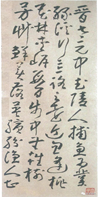 晉太元中武陵人捕魚為業
緣溪行忘路之遠近忽逢桃
花林夾岸數百步中無雜樹
芳草鮮美落英繽紛漁人